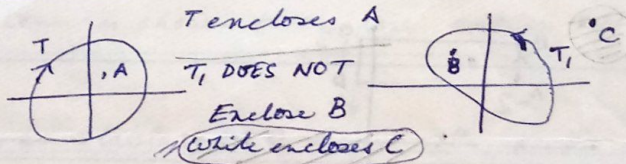 T encloses A
T
.A
T, DOES NOT
Enclose B
While encloses C
B
T,
C